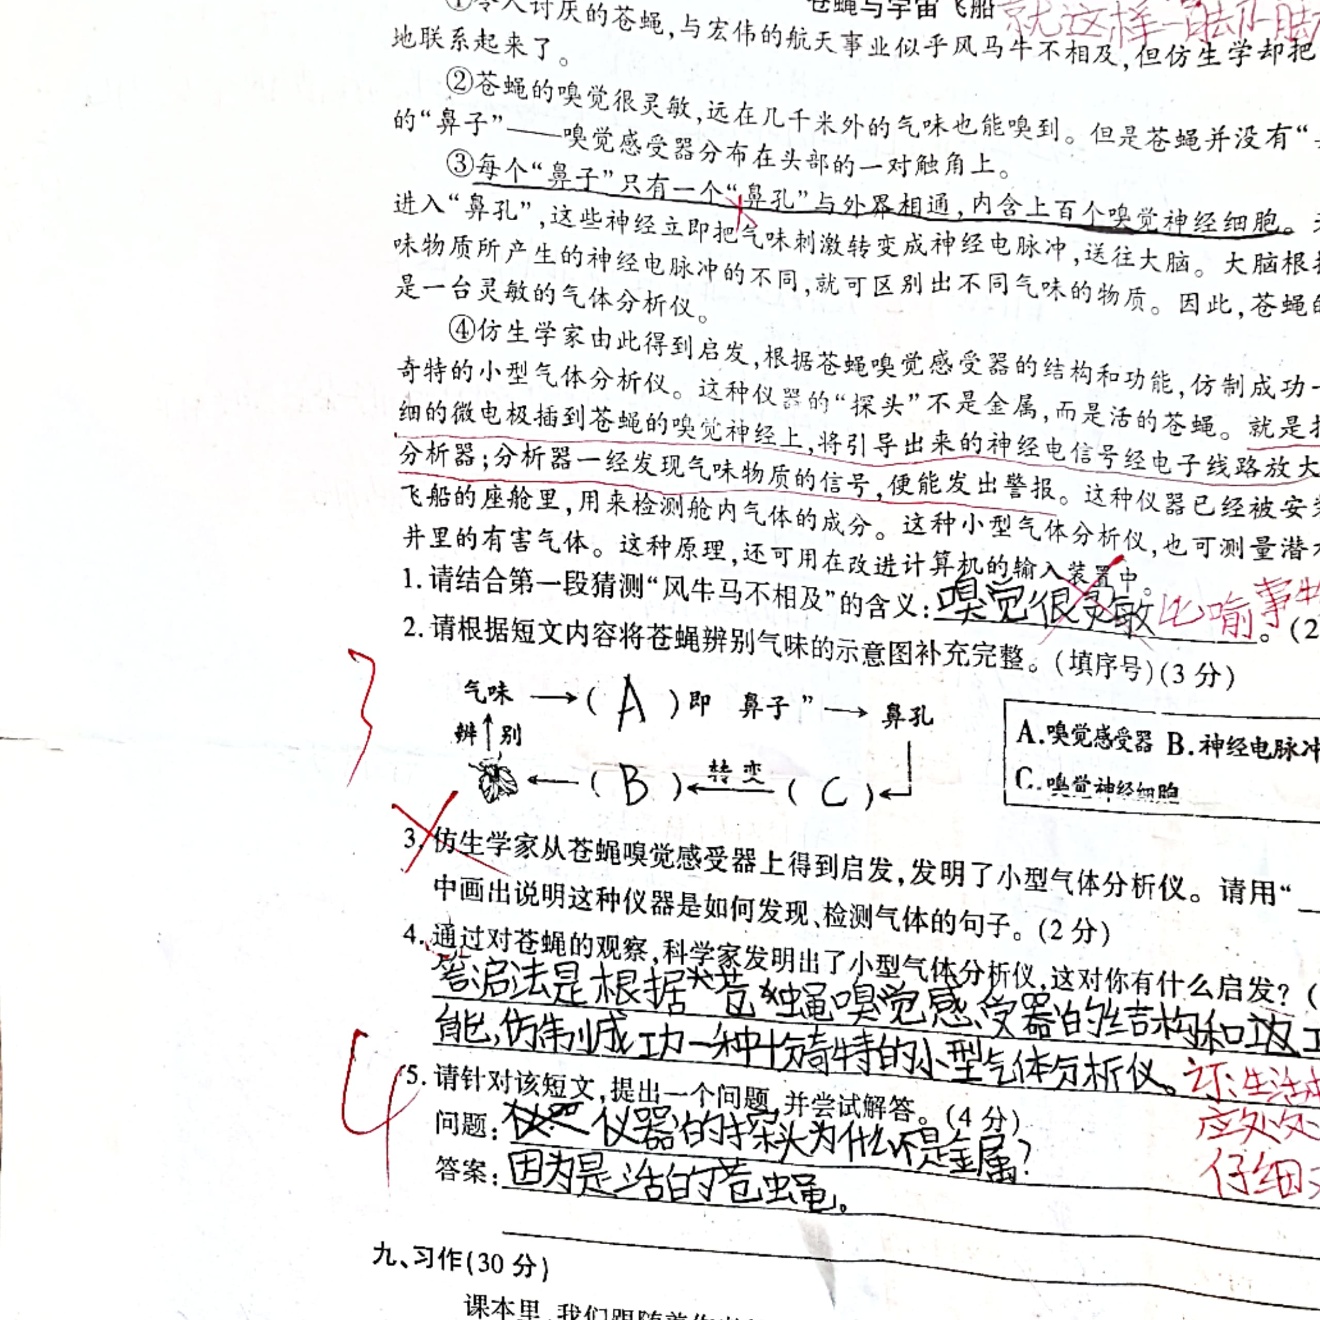 苍蝇与宇宙飞船 就这样
①令人讨厌的苍蝇,与宏伟的航天事业似乎风马牛不相及,但仿生学却把
地联系起来了。
②苍蝇的嗅觉很灵敏,远在几千米外的气味也能嗅到。但是苍蝇并没有“
的“鼻子”——嗅觉感受器分布在头部的一对触角上。
③每个“鼻子”只有一个“鼻孔”与外界相通,内含上百个嗅觉神经细胞。
进入“鼻孔”,这些神经立即把气味刺激转变成神经电脉冲,送往大脑。大脑根
味物质所产生的神经电脉冲的不同,就可区别出不同气味的物质。因此,苍蝇的
是一台灵敏的气体分析仪。
④仿生学家由此得到启发,根据苍蝇嗅觉感受器的结构和功能,仿制成功一
奇特的小型气体分析仪。这种仪器的“探头”不是金属,而是活的苍蝇。就是
细的微电极插到苍蝇的嗅觉神经上,将引导出来的神经电信号经电子线路放大
分析器;分析器一经发现气味物质的信号,便能发出警报。这种仪器已经被安
飞船的座舱里,用来检测舱内气体的成分。这种小型气体分析仪,也可测量潜
井里的有害气体。这种原理,还可用在改进计算机的输入装置中。
1.请结合第一段猜测“风牛马不相及”的含义:嗅觉很灵敏 比喻事 。(2
2.请根据短文内容将苍蝇辨别气味的示意图补充完整。(填序号)(3分)
3
气味 →( A )即 鼻子”→ 鼻孔
辨↑别
←( B )← 转变 ( C )
A.嗅觉感受器 B.神经电脉冲
C.嗅觉神经细胞
3.仿生学家从苍蝇嗅觉感受器上得到启发,发明了小型气体分析仪。请用“
中画出说明这种仪器是如何发现、检测气体的句子。(2分)
4.通过对苍蝇的观察,科学家发明出了小型气体分析仪,这对你有什么启发?(
答:启法是根据苍蝇嗅觉感受器的结构和功
能,仿制成功一种十分奇特的小型气体分析仪。
示:生活
应处处
仔细
4
5.请针对该短文,提出一个问题,并尝试解答。(4分)
问题: 仪器的探头为什么不是金属?
答案:因为是活的苍蝇。
九、习作(30分)
课本里,我们跟随着